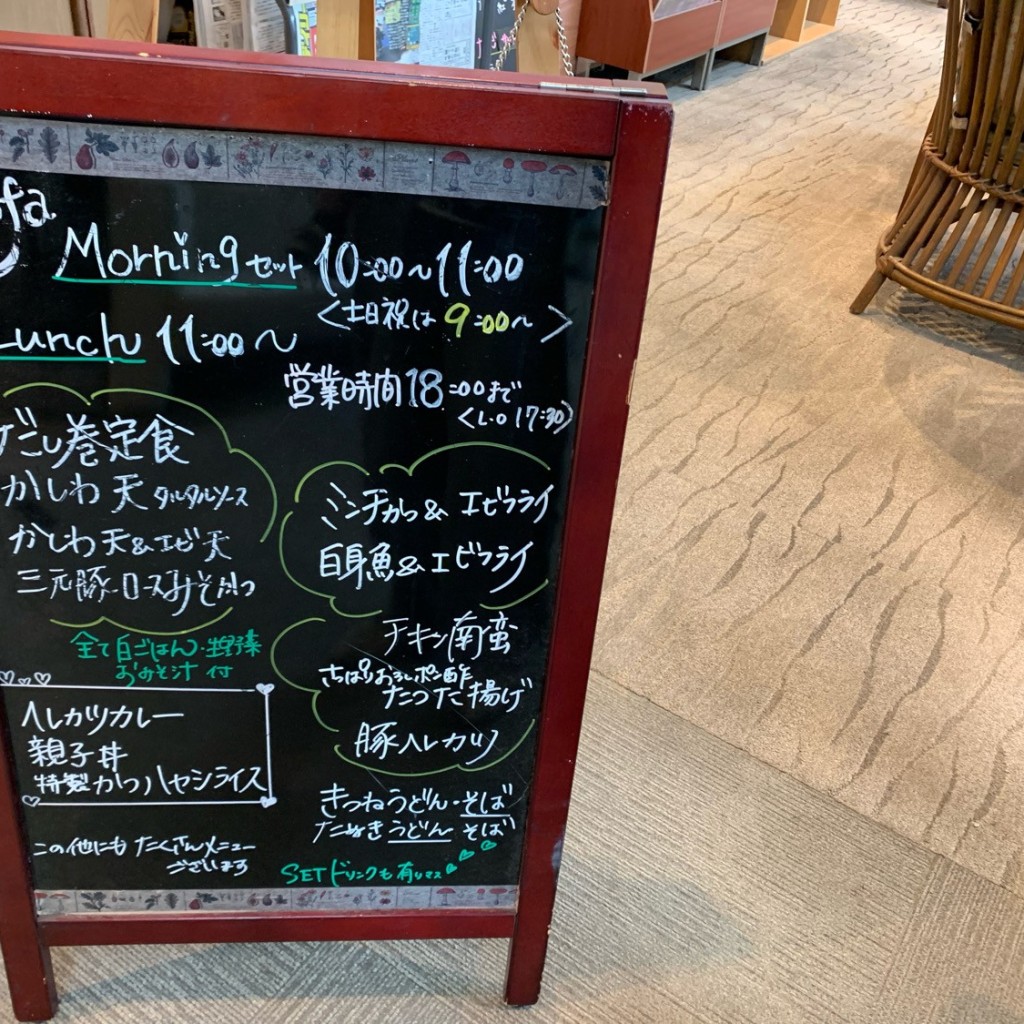 Morningセット 10:00〜11:00
<土日祝は 9:00〜>
Lunch 11:00〜
営業時間18:00まで
<L.O 17:30>
だし巻定食
かしわ天 タルタルソース
かしわ天&エビ天
三元豚ロースみそかつ
全て白ごはん・惣菜
おみそ汁 付
ミンチかつ&エビフライ
白身魚&エビフライ
チキン南蛮
さっぱりおろしポン酢
たつた揚げ
豚ヘレカツ
ヘレカツカレー
親子丼
特製かつハヤシライス
きつねうどん・そば
たぬきうどん そば
この他にも たくさんメニュー
ございます
SETドリンクも有りマス